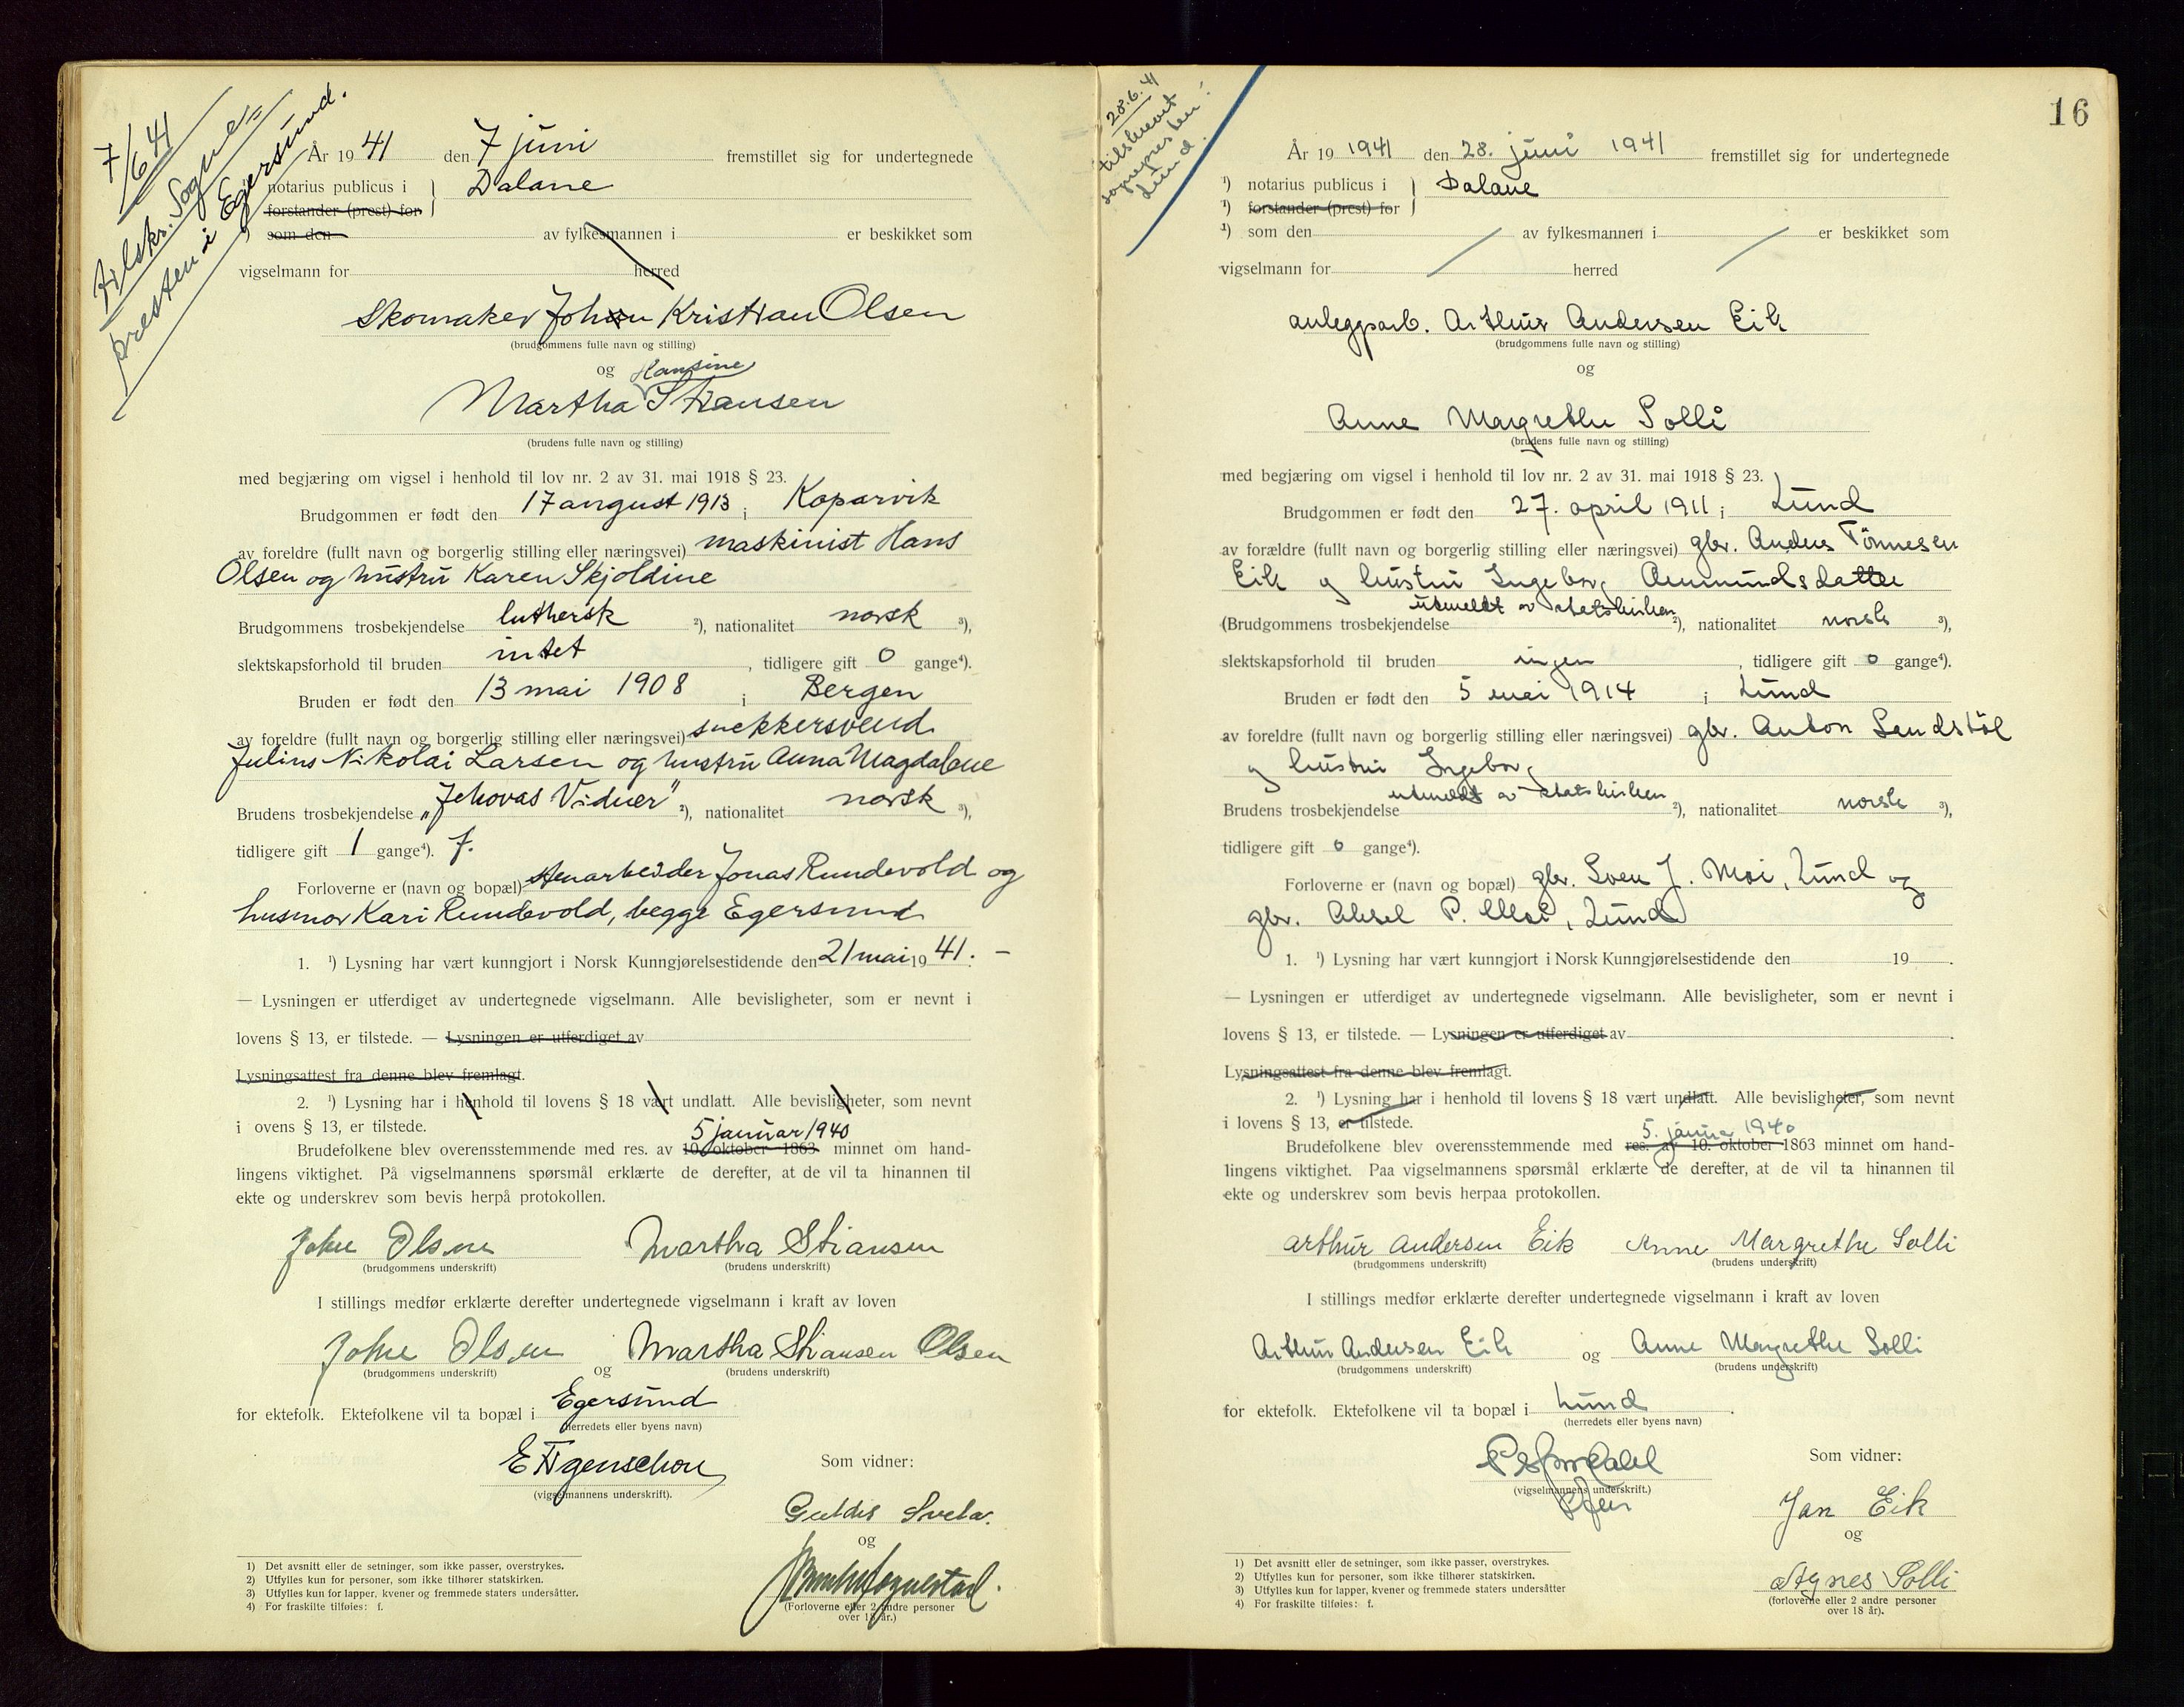 7/6 41
tilskr. Sogne=
presten i Egersund.
År 19 41 den 7 juni fremstillet sig for undertegnede
notarius publicus i Dalane
forstander (prest) for
som den av fylkesmannen i er beskikket som
vigselmann for herred
Skomaker John Kristian Olsen
(brudgommens fulle navn og stilling)
og Hansine
Martha Stiansen
(brudens fulle navn og stilling)
med begjæring om vigsel i henhold til lov nr. 2 av 31. mai 1918 § 23.
Brudgommen er født den 17 august 1913 i Kopervik
av foreldre (fullt navn og borgerlig stilling eller næringsvei) maskinist Hans
Olsen og hustru Karen Skjoldine
Brudgommens trosbekjendelse luthersk ²), nationalitet norsk ³),
slektskapsforhold til bruden intet, tidligere gift 0 gange⁴).
Bruden er født den 13 mai 1908 i Bergen
av foreldre (fullt navn og borgerlig stilling eller næringsvei) snekkersvend
Julius Nikolai Larsen og hustru Anna Magdalene
Brudens trosbekjendelse „Jehovas Vidner" ²), nationalitet norsk ³),
tidligere gift 1 gange⁴). f.
Forloverne er (navn og bopæl) stenarbeider Jonas Rundevold og
husmor Kari Rundevold, begge Egersund
1. ¹) Lysning har vært kunngjort i Norsk Kunngjørelsestidende den 21 mai 19 41. –
— Lysningen er utferdiget av undertegnede vigselmann. Alle bevisligheter, som er nevnt i
lovens § 13, er tilstede. — Lysningen er utferdiget av
Lysningsattest fra denne blev fremlagt.
2. ¹) Lysning har i henhold til lovens § 18 vært undlatt. Alle bevisligheter, som nevnt
i ovens § 13, er tilstede.
5 januar 1940
Brudefolkene blev overensstemmende med res. av 10. oktober 1863 minnet om hand-
lingens viktighet. På vigselmannens spørsmål erklærte de derefter, at de vil ta hinannen til
ekte og underskrev som bevis herpå protokollen.
John Olsen Martha Stiansen
(brudgommens underskrift) (brudens underskrift)
I stillings medfør erklærte derefter undertegnede vigselmann i kraft av loven
John Olsen og Martha Stiansen Olsen
(brudgommens underskrift) (brudens underskrift)
for ektefolk. Ektefolkene vil ta bopæl i Egersund
(herredets eller byens navn)
Som vidner:
(vigselmannens underskrift).
og
(Forloverne eller 2 andre personer
over 18 år.)
1) Det avsnitt eller de setninger, som ikke passer, overstrykes.
2) Utfylles kun for personer, som ikke tilhører statskirken.
3) Utfylles kun for lapper, kvener og fremmede staters undersåtter.
4) For fraskilte tilføies: f.
16
28.6.41
tilskrevet
sognepresten i
Lund.
År 19 1941 den 28. juni 1941 fremstillet sig for undertegnede
¹) notarius publicus i Dalane
¹) forstander (prest) for
¹) som den av fylkesmannen i er beskikket som
vigselmann for herred
anleggsarb. Arthur Andersen Eik
(brudgommens fulle navn og stilling)
og
Anne Margrethe Solli
(brudens fulle navn og stilling)
med begjæring om vigsel i henhold til lov nr. 2 av 31. mai 1918 § 23.
Brudgommen er født den 27. april 1911 i Lund
av forældre (fullt navn og borgerlig stilling eller næringsvei) gbr. Anders Tönnesen
Eik og hustru Ingeborg Aamundsdatter
utmeldt av statskirken
(Brudgommens trosbekjendelse ²), nationalitet norsk ³),
slektskapsforhold til bruden ingen, tidligere gift 0 gange⁴).
Bruden er født den 5 mai 1914 i Lund
av foreldre (fullt navn og borgerlig stilling eller næringsvei) gbr. Anton Sandstöl
og hustru Ingeborg
utmeldt av statskirken
Brudens trosbekjendelse ²), nationalitet norsk ³),
tidligere gift 0 gange⁴).
Forloverne er (navn og bopæl) gbr. Sven J. Moi, Lund og
gbr. Aksel P. Moi, Lund
1. ¹) Lysning har vært kunngjort i Norsk Kunngjørelsestidende den 19 .
— Lysningen er utferdiget av undertegnede vigselmann. Alle bevisligheter, som er nevnt i
lovens § 13, er tilstede. — Lysningen er utferdiget av .
Lysningsattest fra denne blev fremlagt.
2. ¹) Lysning har i henhold til lovens § 18 vært undlatt. Alle bevisligheter, som nevnt
i lovens § 13, er tilstede.
5. januar 1940
Brudefolkene blev overensstemmende med res. av 10. oktober 1863 minnet om hand-
lingens viktighet. Paa vigselmannens spørsmål erklærte de derefter, at de vil ta hinannen til
ekte og underskrev som bevis herpaa protokollen.
Arthur Andersen Eik Anne Margrethe Solli
(brudgommens underskrift) (brudens underskrift)
I stillings medfør erklærte derefter undertegnede vigselmann i kraft av loven
Arthur Andersen Eik og Anne Margrethe Solli
(brudgommens underskrift) (brudens underskrift)
for ektefolk. Ektefolkene vil ta bopæl i Lund.
(herredets eller byens navn)
Som vidner:
(vigselmannens underskrift.)
Jan Eik
og
Agnes Solli
(forloverne eller 2 andre personer
over 18 år).
1) Det avsnitt eller de setninger, som ikke passer, overstrykes.
2) Utfylles kun for personer, som ikke tilhører statskirken.
3) Utfylles kun for lapper, kvener og fremmede staters undersåtter
4) For fraskilte tilføies: f.